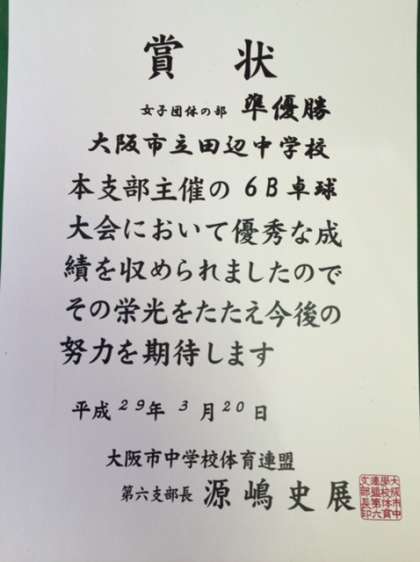 賞状
女子団体の部 準優勝
大阪市立田辺中学校
本支部主催の6B卓球
大会において優秀な成
績を収められましたので
その栄光をたたえ今後の
努力を期待します
平成29年3月20日
大阪市中学校体育連盟
第六支部長 源嶋史展